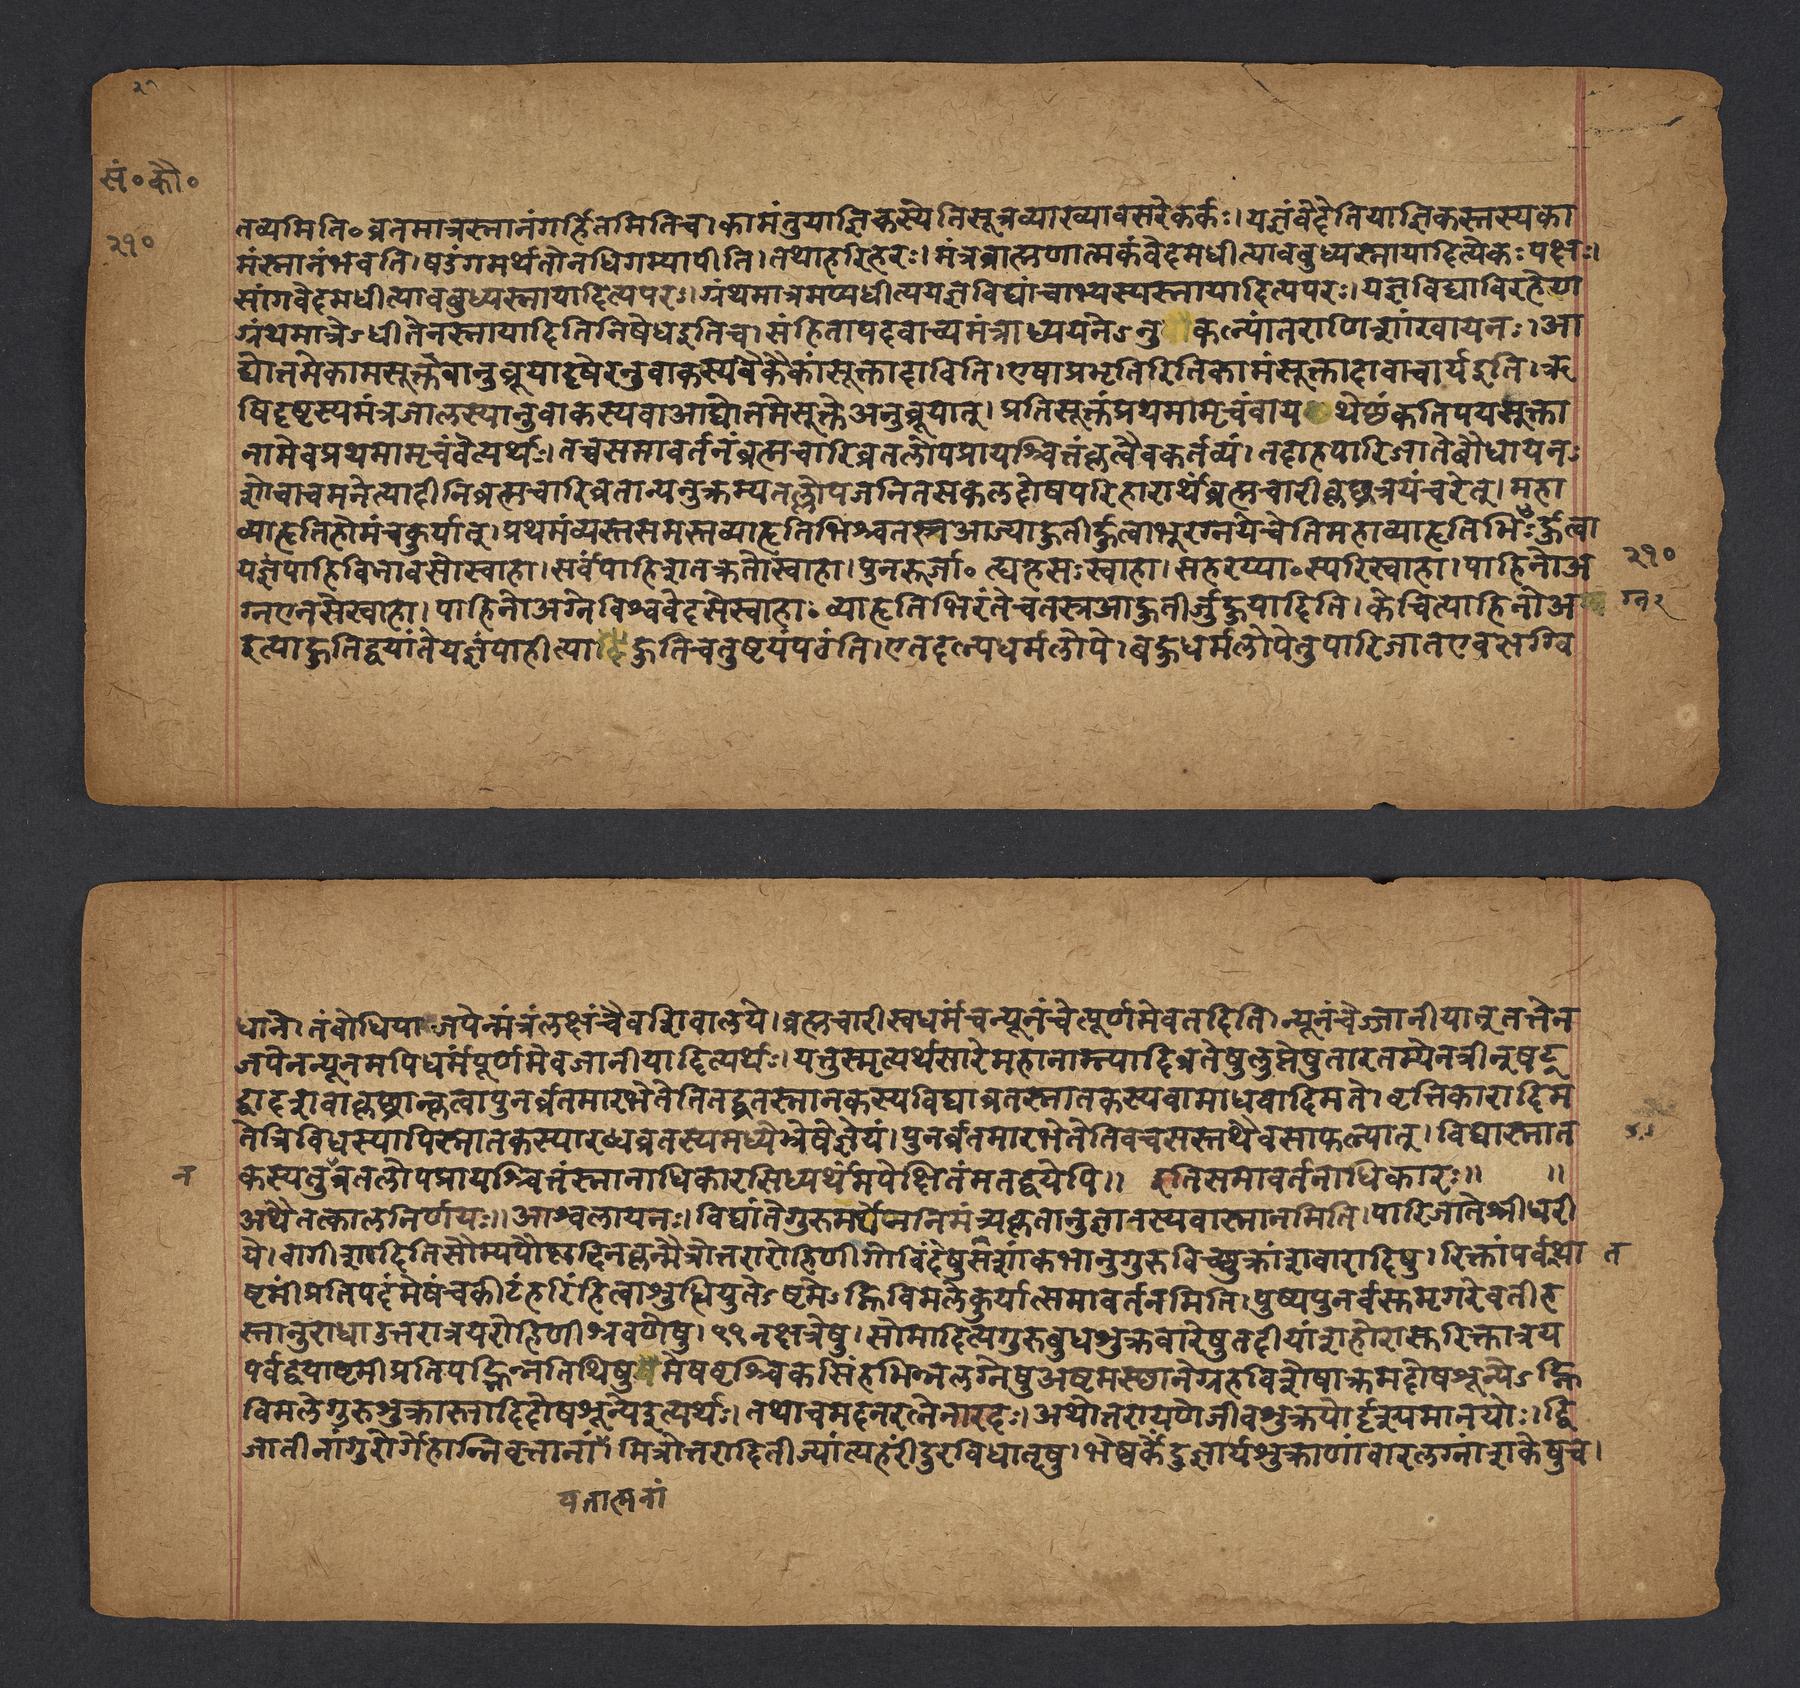 सं॰कौ॰
२१०
तव्यमिति॰व्रतमात्रस्नानंगर्हितमितिच।कामंतुयाज्ञिकस्येतिसूत्रव्याख्यावसरेकर्कः।यज्ञंवेदेतियाज्ञिकस्तस्यका
मंस्नानंभवति।षडंगमर्थतोनधिगम्यापीति।तथाहरिहरः।मंत्रब्राह्मणात्मकंवेदमधीत्यावबुध्यस्नायादित्येकःपक्षः।
सांगवेदमधीत्यावबुध्यस्नायादित्यपरः।ग्रंथमात्रमप्यधीत्ययज्ञविद्यांचाभ्यस्यस्नायादित्यपरः।यज्ञविद्याविरहेण
ग्रंथमात्रेऽधीतेनस्नायादितिनिषेधइतिच।संहितापदवाच्यमंत्राध्ययनेऽनु कल्पांतराणिशांखायनः।आ
द्योत्तमेकामसूक्तेवानुब्रूयादृषेरनुवाकस्यवैकैकांसूक्तादाविति।एषाप्रभृतिरितिकामंसूक्तादावाचार्यइति।ऋ
षिदृष्टस्यमंत्रजालस्यानुवाकस्यवाआद्योत्तमेसूक्तेअनुब्रूयात्।प्रतिसूक्तंप्रथमामृचंवाय थेष्टंकतिपयसूक्ता
नामेवप्रथमामृचंवेत्यर्थः।तच्चसमावर्तनंब्रह्मचारिव्रतलोपप्रायश्चित्तंकृत्वैवकर्तव्यं।तदाहपारिजातेबौधायनः
शौचाचमनेत्यादीनिब्रह्मचारिव्रतान्यनुक्रम्यतल्लोपजनितसकलदोषपरिहारार्थंब्रह्मचारीकृच्छ्रत्रयंचरेत्।महा
व्याहृतिहोमंचकुर्यात्।प्रथमंव्यस्तसमस्तव्याहृतिभिश्चतस्रआज्याहुतीर्हुत्वाभूरग्नयेचेतिमहाव्याहृतिभिःर्हुत्वा
यज्ञंपाहिविभावसोस्वाहा।सर्वंपाहिशतक्रतोस्वाहा।पुनरूर्जा॰त्यहसःस्वाहा।सहरय्या॰स्परिस्वाहा।पाहिनोअ
२१०
ग्नएनसेस्वाहा।पाहिनोअग्नेविश्ववेदसेस्वाहा॰व्याहृतिभिरंतेचतस्रआहुतीर्जुहुयादिति।केचित्पाहिनोअ
ग्न२
इत्याहुतिद्वयांतेयज्ञंपाहीत्या हुतिचतुष्टयंपठंति।एतदल्पधर्मलोपे।बहुधर्मलोपेतुपारिजातएवऋग्वि
धाने।तंवोधिया जपेन्मंत्रंलक्षंचैवशिवालये।ब्रह्मचारीस्वधर्मंचन्यूनंचेत्पूर्णमेवतदिति।न्यूनंचेज्जानीयात्तर्तत्तेन
जपेनन्यूनमपिधर्मंपूर्णमेवजानीयादित्यर्थः।यत्तुस्मृत्यर्थसारेमहानाम्न्यादिव्रतेषुलुप्तेषुतारतम्येनत्रीन्षट्
द्वादशवाकृच्छ्रान्कृत्वापुनर्व्रतमारभेतेतितद्व्रतस्नानकस्यविद्याव्रतस्नातकस्यवामाधवादिमते।वृत्तिकारादिम
तेत्रिविधस्यापिस्नातकस्यारब्धव्रतस्यमध्येभ्रेषेज्ञेयं।पुनर्व्रतमारभेतेतिवचसस्तथैवसाफल्यात्।विद्यास्नात
कस्यतुव्रतलोपप्रायश्चित्तंस्नानाधिकारसिध्यर्थंमपेक्षितंमतद्वयेपि॥ इतिसमावर्तनाधिकारः॥ ॥
न
अथैतत्कालनिर्णयः॥आश्वलायनः।विद्यांतेगुरुमर्थेननिमंत्र्यकृतानुज्ञातस्यवास्नानमिति।पारिजातेश्रीधरी
ये।वागीशादितिसौम्यपौष्णदिनकृन्मैत्रोत्तरारोहिणीगोविंदेषुसशांकभानुगुरुविच्छुक्रांशवारादिषु।रिक्तांपर्वयथा
त
ष्टमींप्रतिपदंमेषंचकीटंहरिंहित्वाशुद्धियुतेऽष्टमेऽह्निविमलेकुर्यात्समावर्तनमिति।पुष्यपुनर्वसुमृगरेवतीह
स्तानुराधाउत्तरात्रयरोहिणीश्रवणेषु।९९नक्षत्रेषु।सोमादित्यगुरुबुधशुक्रवारेषुतदीयांशहोरासुरिक्तात्रय
पर्वद्वयाष्टमीप्रतिपद्भिन्नतिथिषु मेषवृश्चिकसिंहभिन्नलग्नेषुअष्टमस्थानेग्रहविशेषाक्रमदोषशून्येऽह्नि
विमलेगुरुशुक्रास्तादिदोषशून्येइत्यर्थः।तथाचमदनरत्नेनारदः।अथोत्तरायणेजीवशुक्रयोर्दृश्यमानयोः।द्वि
जातीनांगुरोर्गेहान्निवृत्तानां मित्रोत्तरादितीज्यांत्यहरींदुरविधातृषु।भेष्वर्केंदुज्ञार्यशुक्राणांवारलग्नांशकेषुच।
यतात्मनां